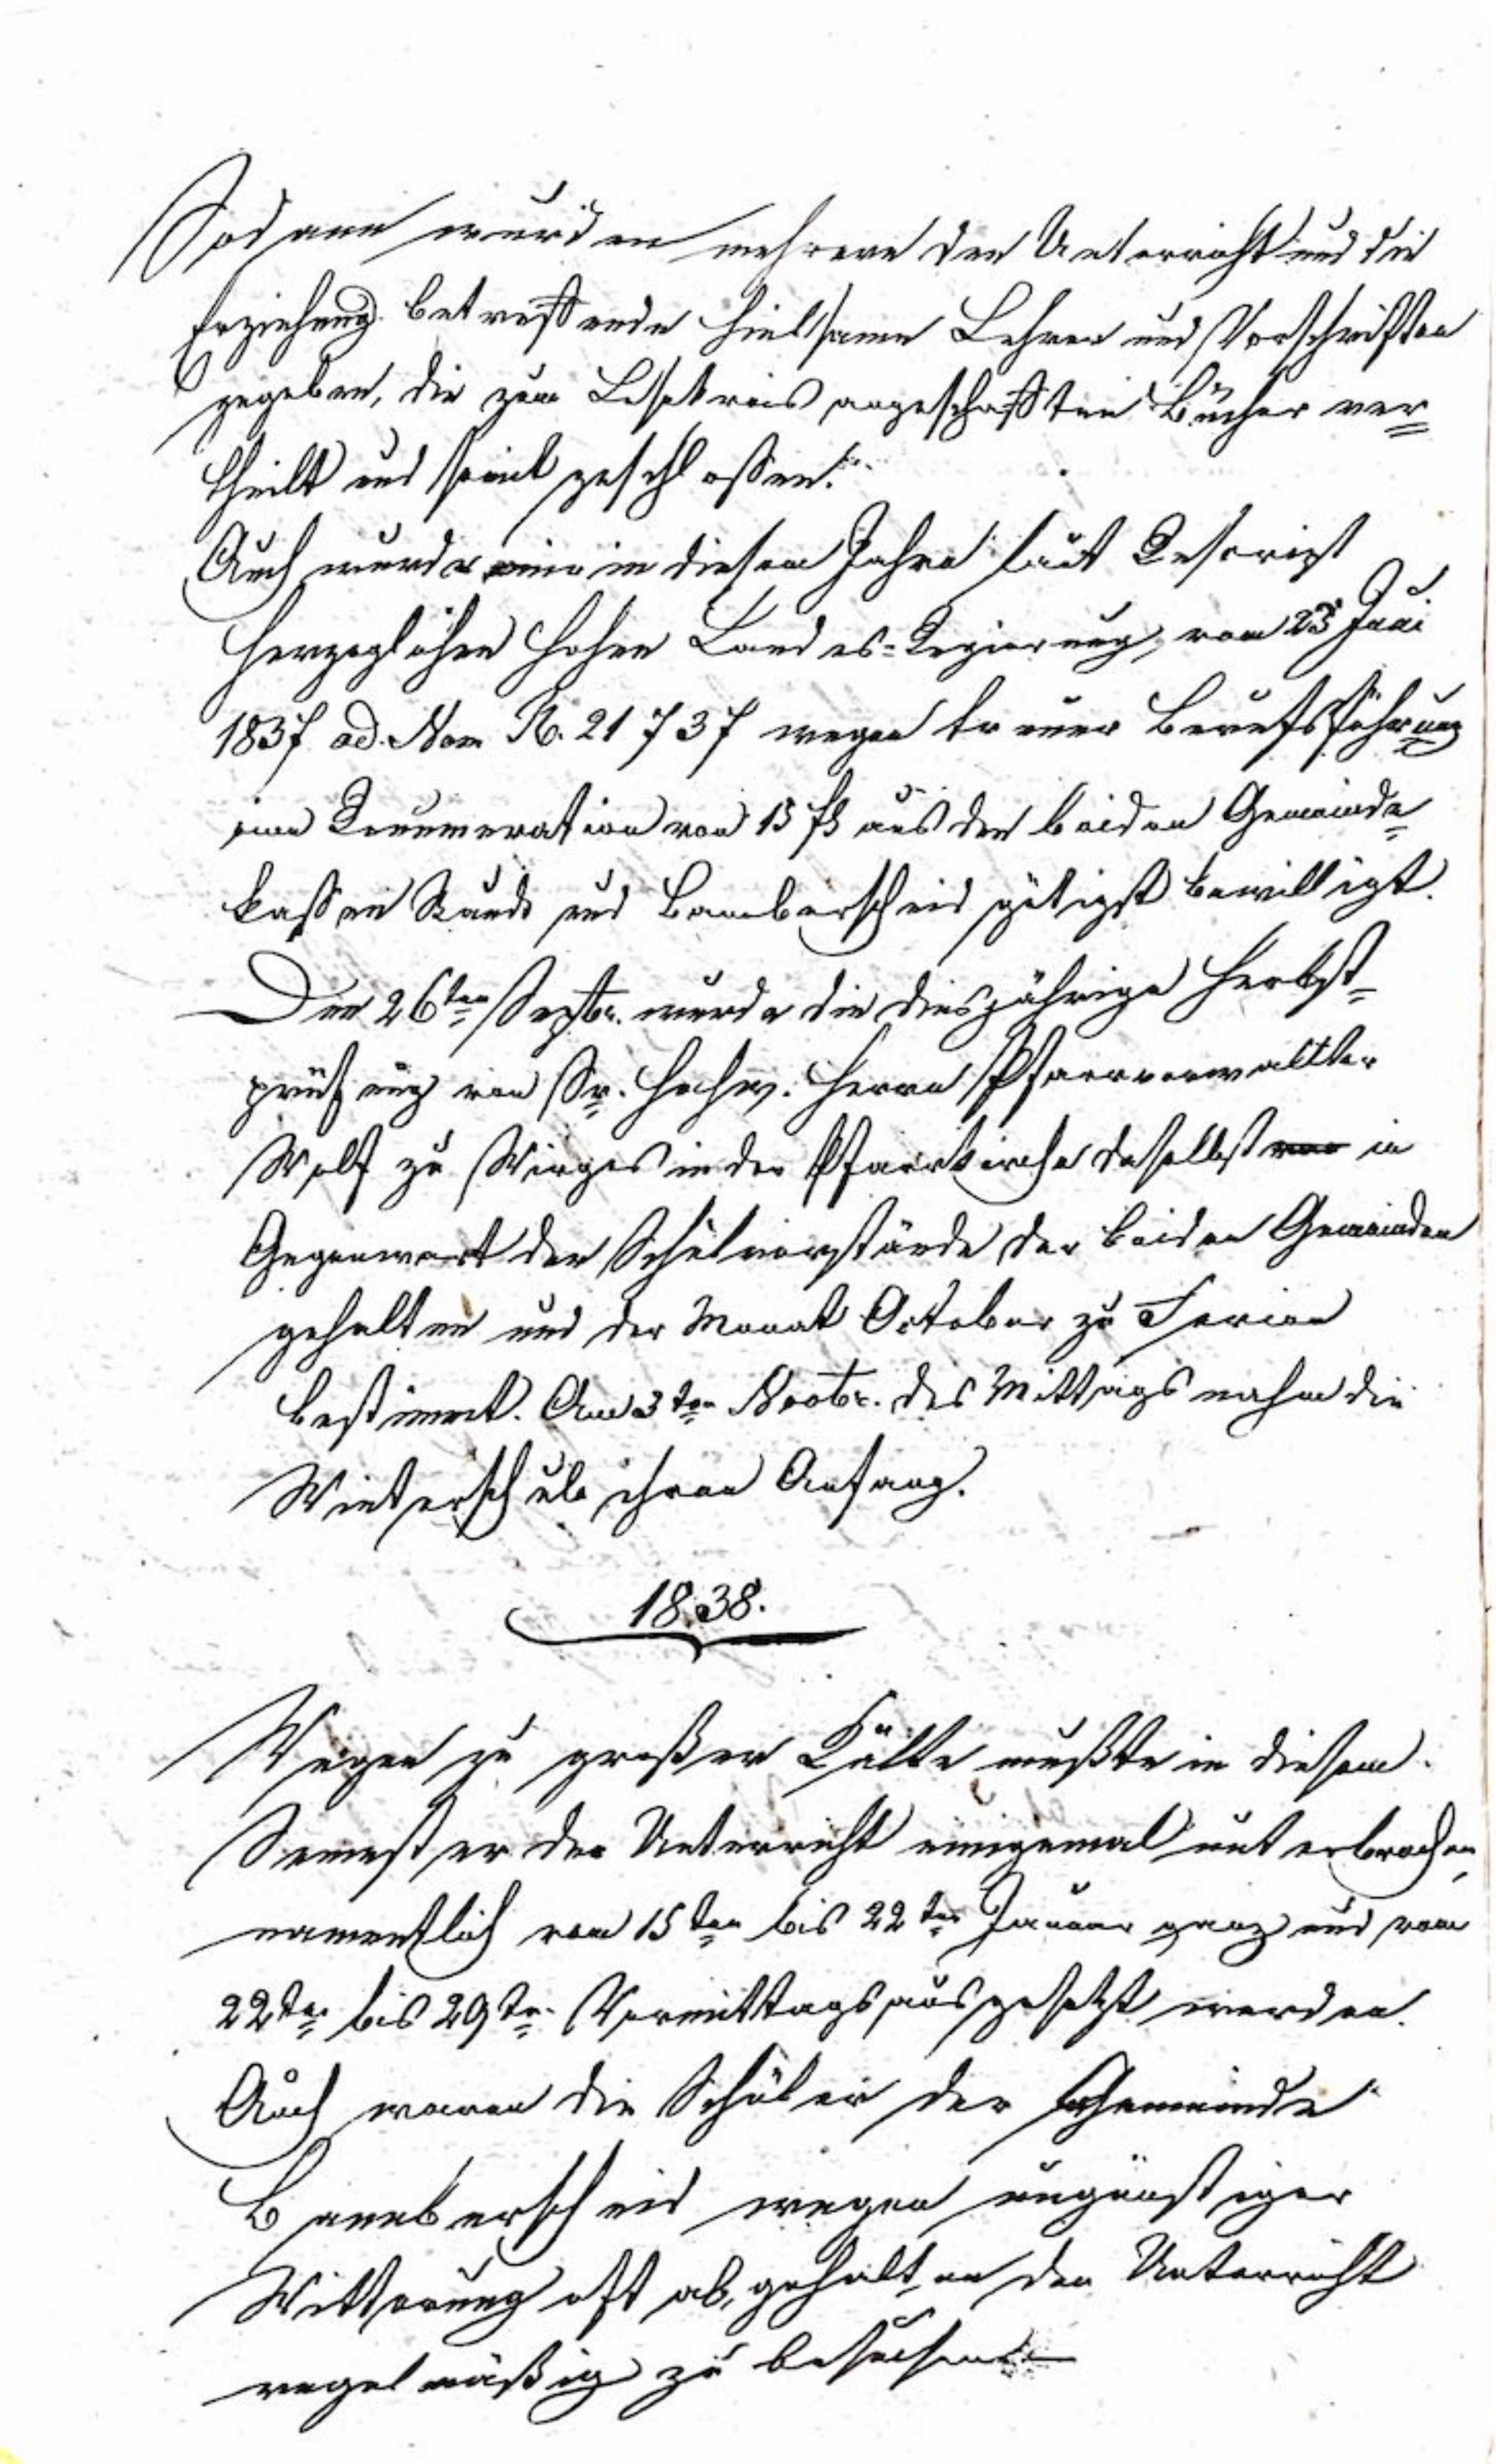 Sodann wurden mehrere den Unterricht und die
Erziehung betreffende heilsame Lehren und Vorschriften
gegeben, die zum Lesekreis angeschafften Bücher ver=
theilt und somit geschlossen.
Auch wurde mir in diesem Jahre laut Rescript
Herzoglichen Hohen Landes=Regierung, vom 23 Juni
1837 ad. Num R. 21 737 wegen treuer Berufsführung
eine Renumeration von 15 fl aus den beiden Gemeinde=
kassen Staudt und Bannberscheid gütigst bewilligt.
Den 26ten Septbr. wurde die diesjährige Herbst=
prüfung von Sr. Hochw. Herrn Pfarrverwallter
Wolf zu Wirges in der Pfarrkirche daselbst in
Gegenwart der Schulvorstände der beiden Gemeinden
gehalten und der Monat October zu Ferien
bestimmt. Am 3ten Novbr. des Mittags nahm die
Winterschule ihren Anfang.
1838.
Wegen zu großer Kälte mußte in diesem
Semester der Unterricht einigemal unterbrochen,
namentlich vom 15ten bis 22ten Januar ganz und vom
22ten bis 29ten Vormittags ausgesetzt werden.
Auch waren die Schüler der Gemeinde
Bannberscheid wegen ungünstiger
Witterung oft abgehalten den Unterricht
regelmäßig zu besuchen.